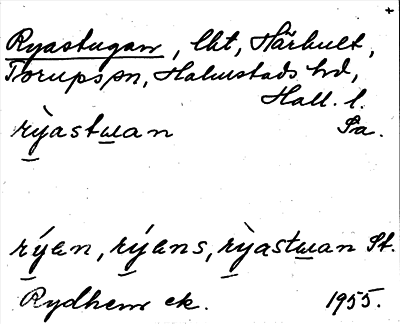 Ryastugan, lht, Hårhult,
Torups sn, Halmstads hd,
Hall. l.
rỳastɯan Sa.
rýɛn, rýɛns, rỳastɯan St.
Rydhem ek. 1955.